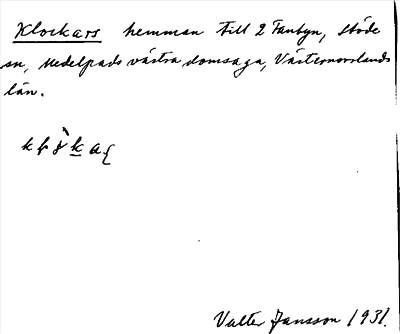 Klockars hemman till 2 Fanbyn, Stöde
sn, Medelpads västra domsaga, Västernorrlands
län.
Valter Jansson 1931.